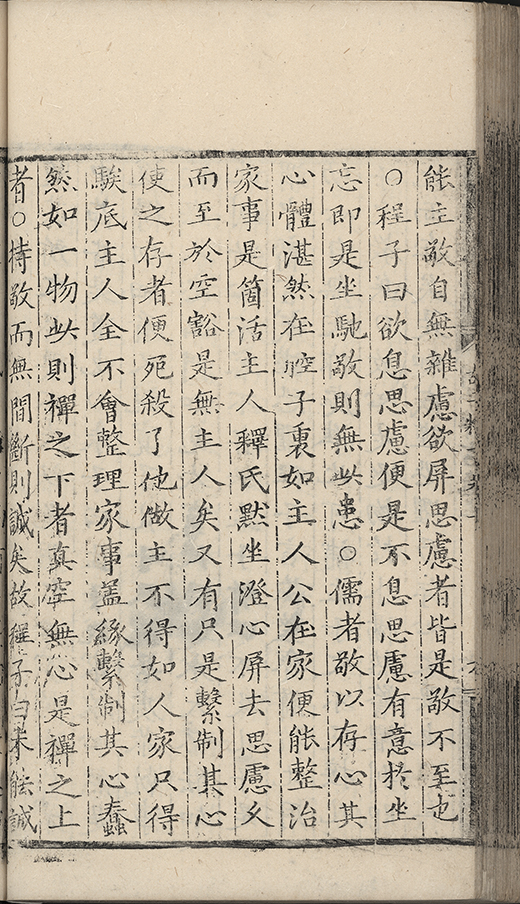 能主敬自無雜慮欲屏思慮者皆是敬不至也
○程子曰欲息思慮便是不息思慮有意於坐
忘即是坐馳敬則無此患○儒者敬以存心其
心體湛然在腔子裏如主人公在家便能整治
家事是箇活主人釋氏默坐澄心屏去思慮久
而至於空豁是無主人矣又有只是繫制其心
使之存者便死殺了他做主不得如人家只得
騃底主人全不會整理家事盖緣繫制其心蠢
然如一物此則禪之下者真空無心是禪之上
者○持敬而無間斷則誠矣故程子曰未能誠